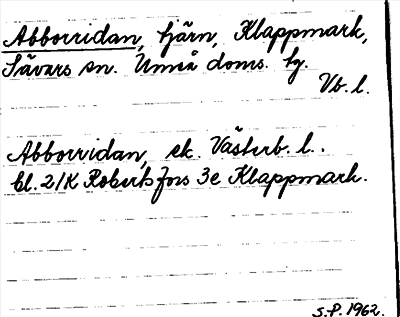 Abborridan, tjärn, Klappmark,
Sävars sn. Umeå doms. tg.
Vb. l.
Abborridan, ek. Västerb. l..
bl. 21K Robertsfors 3e Klappmark.
S.P. 1962.